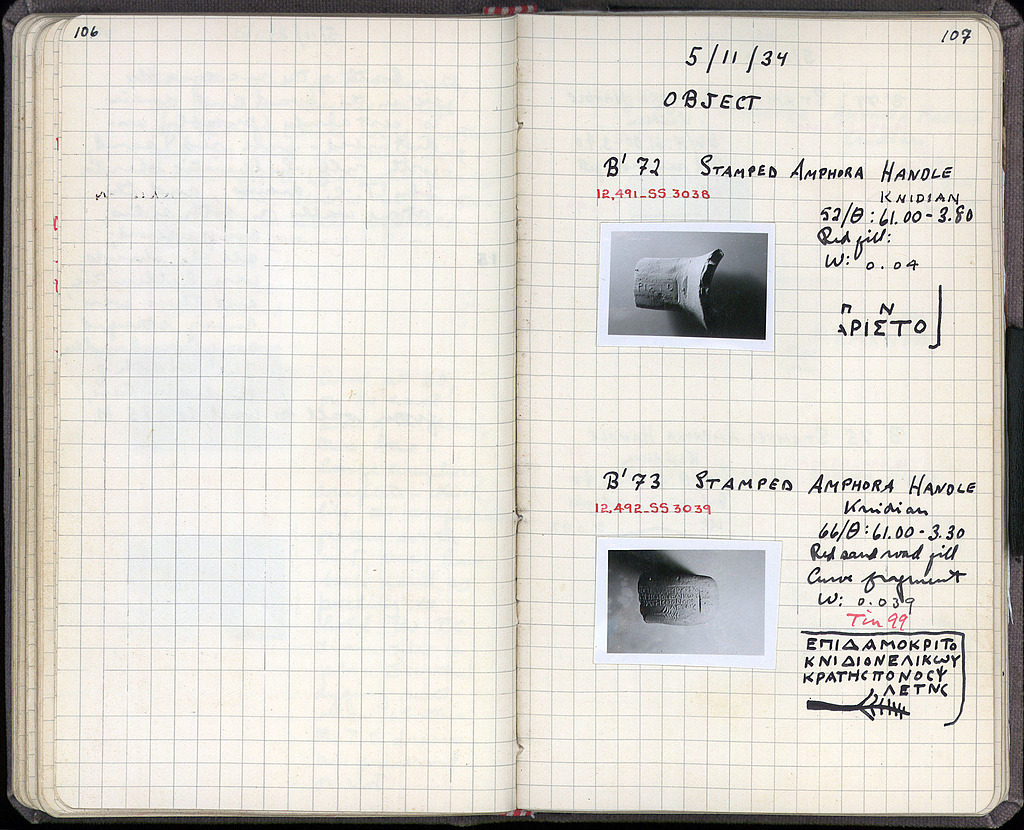 106
107
5/11/34
OBJECT
B' 72 STAMPED AMPHORA HANDLE
12,491_SS 3038
KNIDIAN
52/Θ : 61.00 - 3.80
Red fill:
W: 0.04
Π Ν
ΑΡΙΣΤΟ
B' 73 STAMPED AMPHORA HANDLE
12,492_SS 3039
Knidian
66/Θ : 61.00 - 3.30
Red sand road fill
Curve fragment
W: 0.039
Tin 99
ΕΠΙΔΑΜΟΚΡΙΤΟ
ΚΝΙΔΙΟΝΕΛΙΚѠΥ
ΚΡΑΤΗϹΠΟΝΟϹΨ
ΛΕΤΝϹ